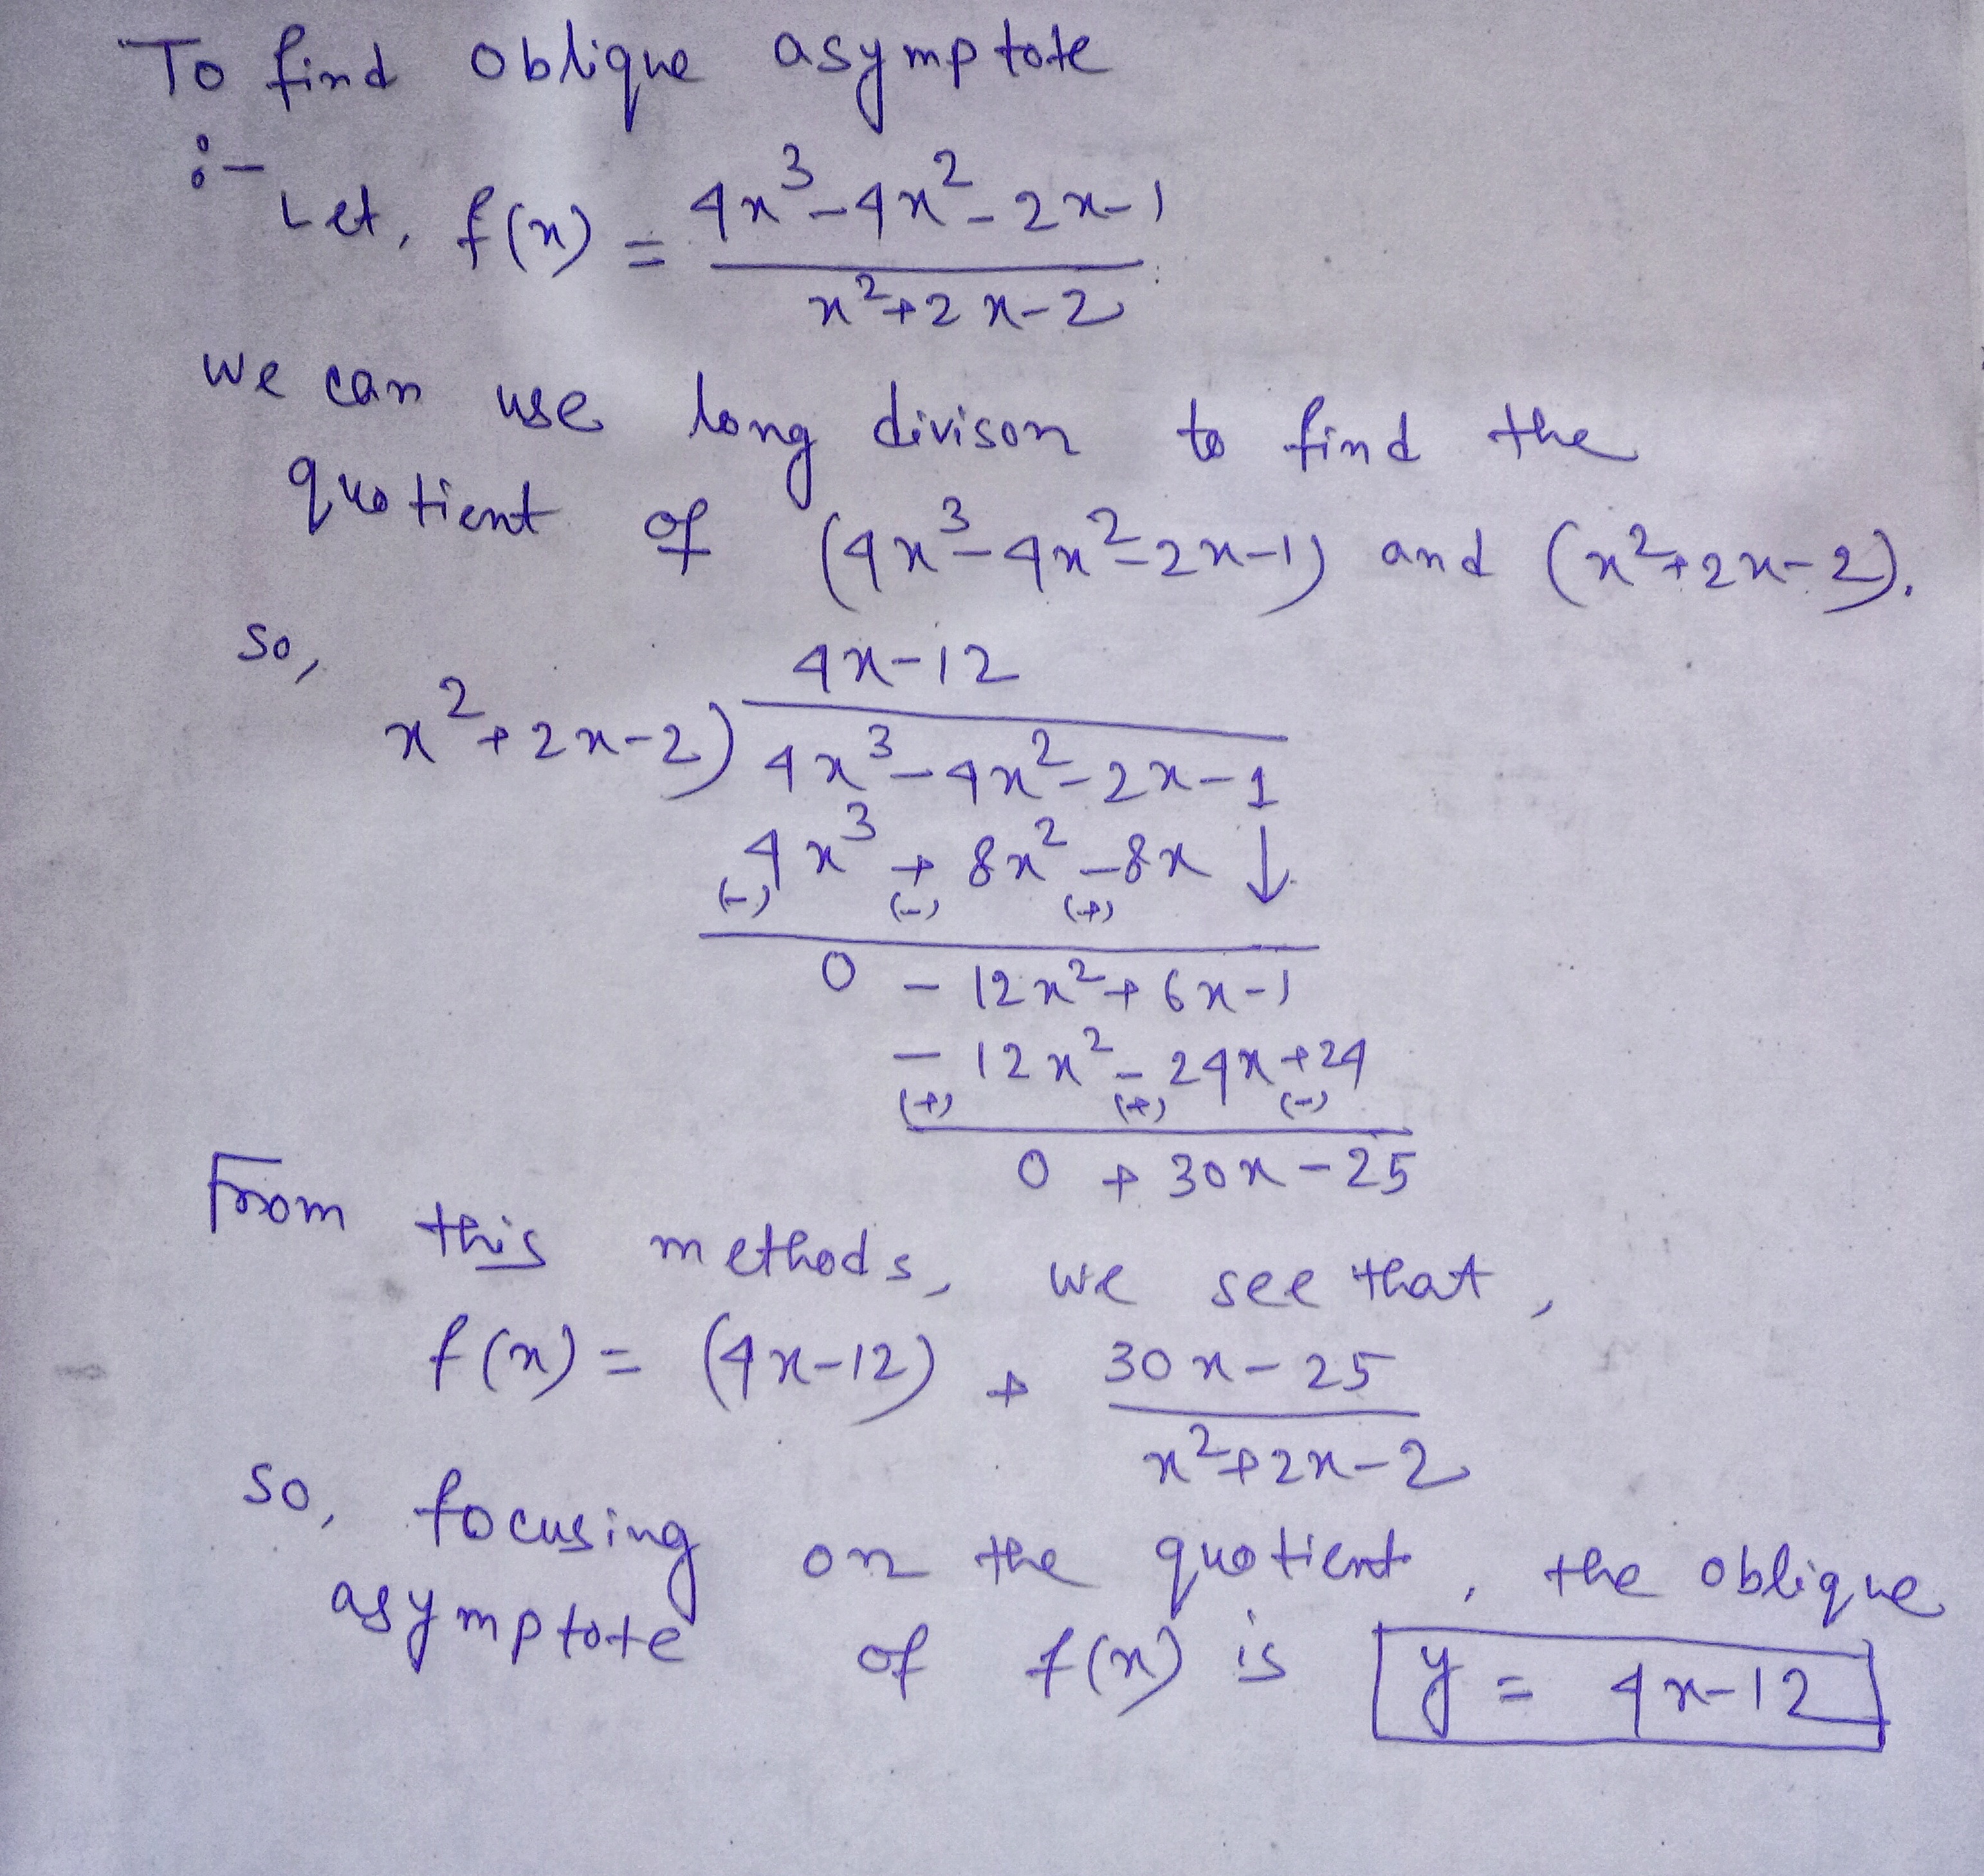 To find oblique asymptote
:-
Let, f(x) = 4x³-4x²-2x-1
x²+2x-2
we can use long divison to find the
quotient of (4x³-4x²-2x-1) and (x²+2x-2).
so,
4x-12
x²+2x-2) 4x³-4x²-2x-1
4x³+8x²-8x ↓
(-) (-) (+)
0 - 12x²+6x-1
- 12x²-24x+24
(+) (+) (-)
0 + 30x-25
From this methods, we see that,
f(x) = (4x-12) + 30x-25
x²+2x-2
so, focusing on the quotient, the oblique
asymptote of f(x) is y = 4x-12